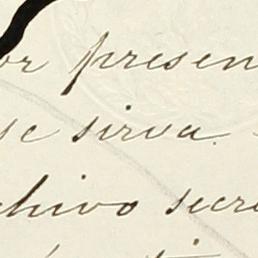 or presen
se sirva.
chivo secre